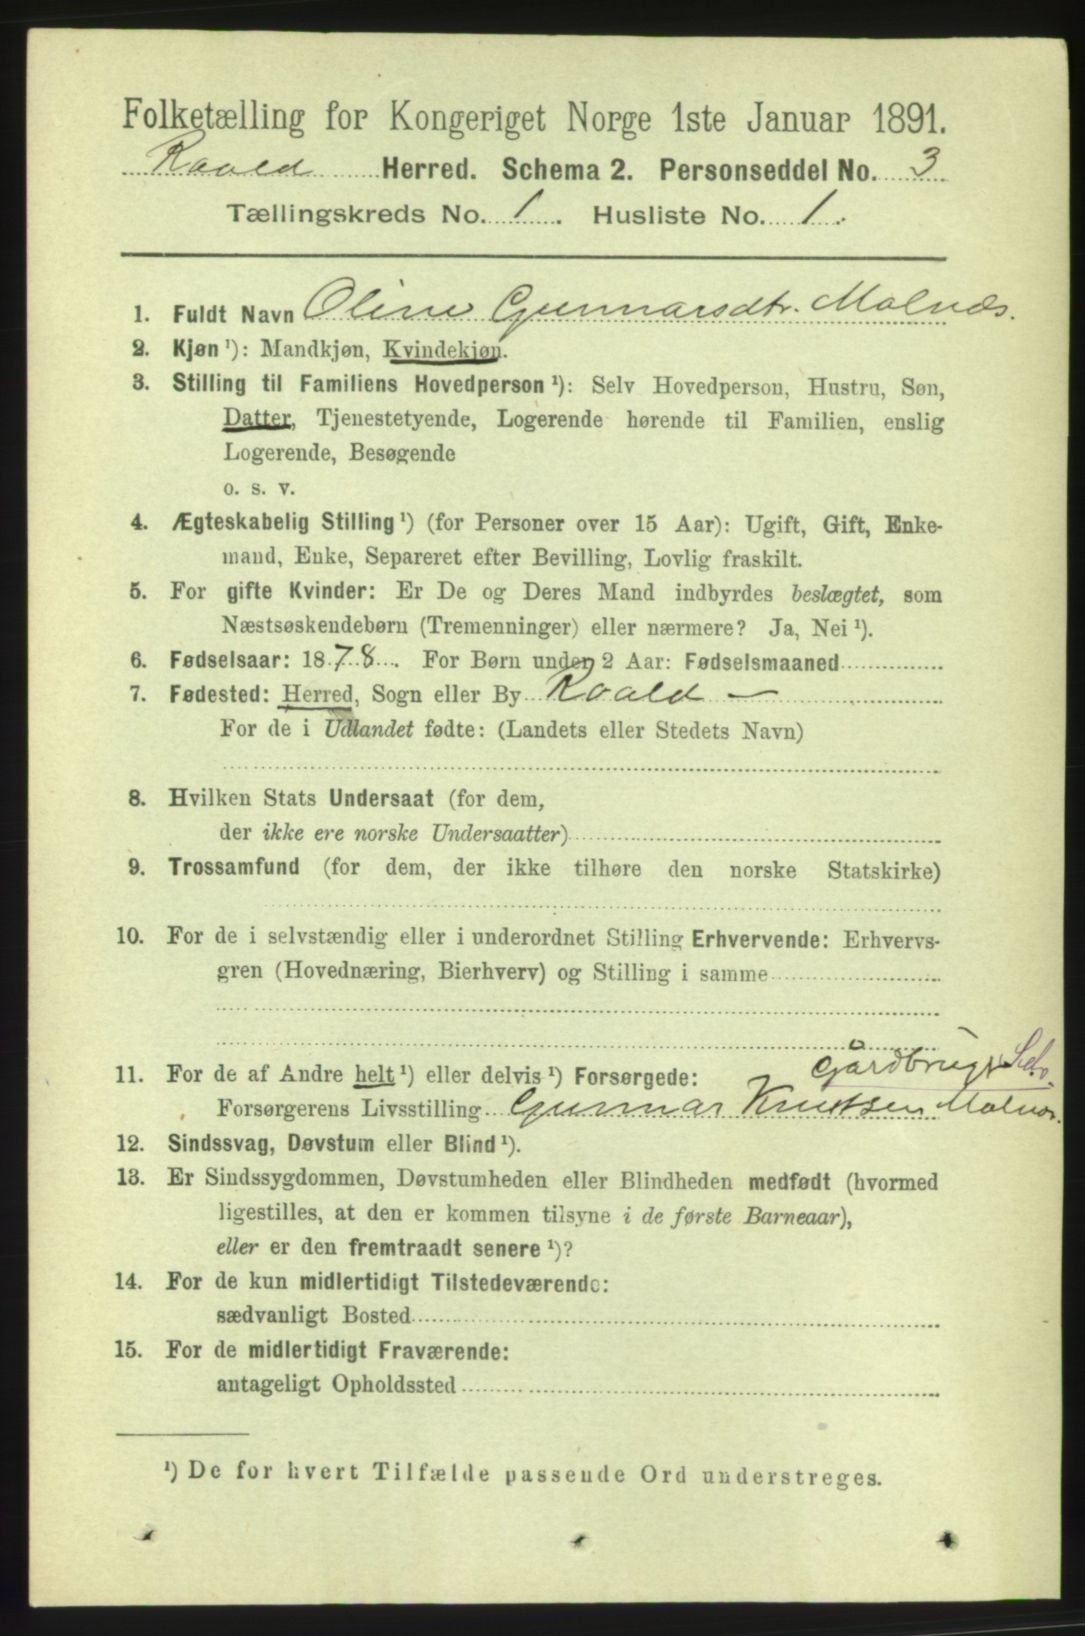 Folketælling for Kongeriget Norge 1ste Januar 1891.
Roald Herred. Schema 2. Personseddel No. 3
Tællingskreds No. 1. Husliste No. 1.
1. Fuldt Navn Oline Gunnarsdtr. Molnæs.
2. Kjøn ¹): Mandkjøn, Kvindekjøn.
3. Stilling til Familiens Hovedperson ¹): Selv Hovedperson, Hustru, Søn,
Datter, Tjenestetyende, Logerende hørende til Familien, enslig
Logerende, Besøgende
o. s. v.
4. Ægteskabelig Stilling ¹) (for Personer over 15 Aar): Ugift, Gift, Enke-
mand, Enke, Separeret efter Bevilling, Lovlig fraskilt.
5. For gifte Kvinder: Er De og Deres Mand indbyrdes beslægtet, som
Næstsøskendebørn (Tremenninger) eller nærmere? Ja, Nei ¹).
6. Fødselsaar: 1878. For Børn under 2 Aar: Fødselsmaaned
7. Fødested: Herred, Sogn eller By Roald —
For de i Udlandet fødte: (Landets eller Stedets Navn)
8. Hvilken Stats Undersaat (for dem,
der ikke ere norske Undersaatter)
9. Trossamfund (for dem, der ikke tilhøre den norske Statskirke)
10. For de i selvstændig eller i underordnet Stilling Erhvervende: Erhvervs-
gren (Hovednæring, Bierhverv) og Stilling i samme
11. For de af Andre helt ¹) eller delvis ¹) Forsørgede: Gårdbruger
Forsørgerens Livsstilling Gunnar Knutsen Molnæs.
12. Sindssvag, Døvstum eller Blind ¹).
13. Er Sindssygdommen, Døvstumheden eller Blindheden medfødt (hvormed
ligestilles, at den er kommen tilsyne i de første Barneaar),
eller er den fremtraadt senere ¹)?
14. For de kun midlertidigt Tilstedeværende:
sædvanligt Bosted
15. For de midlertidigt Fraværende:
antageligt Opholdssted
¹) De for hvert Tilfælde passende Ord understreges.